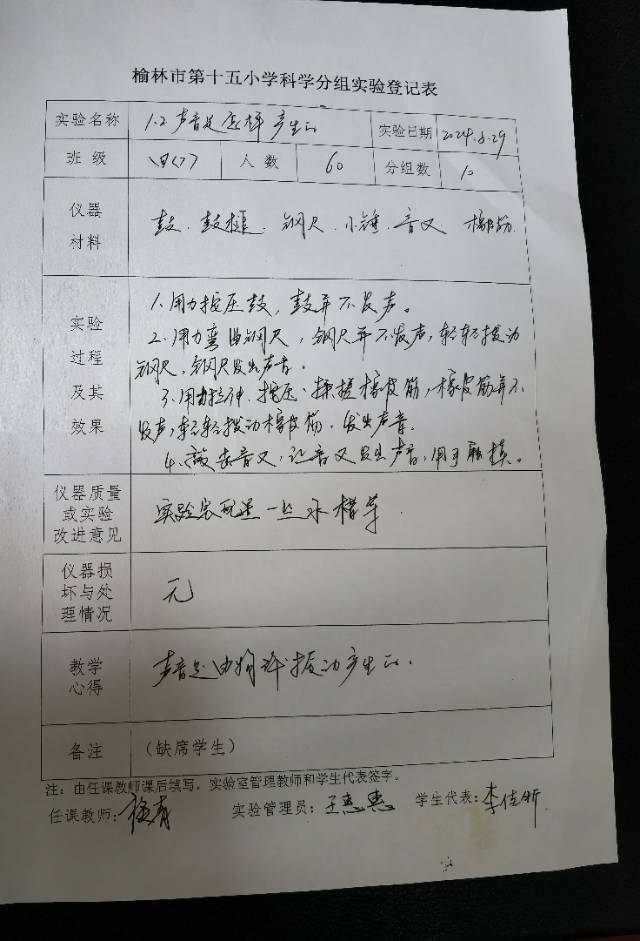 榆林市第十五小学科学分组实验登记表
实验名称 1.2声音是怎样产生的 实验日期 2024.8.29
班级 四(7) 人数 60 分组数 10
仪器材料 鼓、鼓槌、钢尺、小锤、音叉 橡皮筋
实验过程及其效果
1、用力按压鼓,鼓并不发声。
2、用力弯曲钢尺,钢尺并不发声,轻轻拨动
钢尺,钢尺发出声音。
3、用力拉伸、按压、揉搓橡皮筋,橡皮筋并不
发声,轻轻拨动橡皮筋,发出声音。
4、敲击音叉,让音叉发出声音,用手触摸。
仪器质量或实验改进意见 实验室配置一些水槽等
仪器损坏与处理情况 无
教学心得 声音是由物体振动产生的.
备注 (缺席学生)
注:由任课教师课后填写,实验室管理教师和学生代表签字。
任课教师: 实验管理员:王惠惠 学生代表:李佳昕